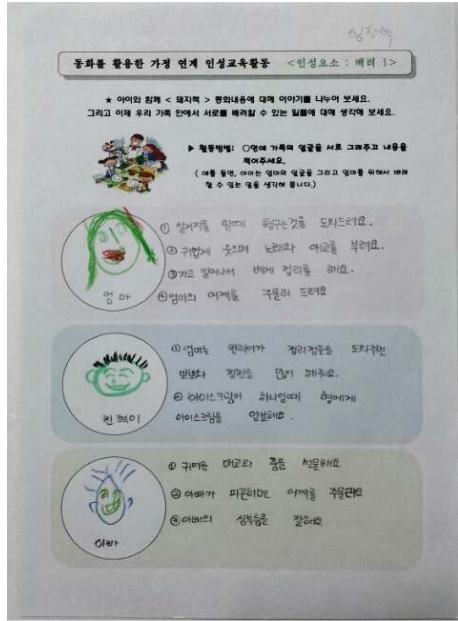 동화를 활용한 가정 연계 인성교육활동 <인성요소 : 배려 1>
★ 아이와 함께 < 돼지책 > 동화내용에 대해 이야기를 나누어 보세요.
그리고 이제 우리 가족 안에서 서로를 배려할 수 있는 일들에 대해 생각해 보세요.
▶ 활동방법: ○안에 가족의 얼굴을 서로 그려주고 내용을
적어주세요.
( 예를 들면, 아이는 엄마의 얼굴을 그리고 엄마를 위해서 배려
할 수 있는 일을 생각해 봅니다.)
① 설거지를 할때 헹구는것을 도와드려요.
② 귀엽게 웃으며 노래와 애교를 부려요.
③ 자고 일어나서 베게 정리를 해요.
④ 엄마의 어깨를 주물러 드려요
엄마
① 엄마는 찬혁이가 정리정돈을 도와주면
뽀뽀와 칭찬을 많이 해주요.
② 아이스크림이 하나일때 형에게
아이스크림을 양보해요.
찬혁이
① 귀여운 애교와 춤을 선물해요
② 아빠가 피곤하면 어깨를 주물러요
③ 아빠의 심부름을 잘해요
아빠